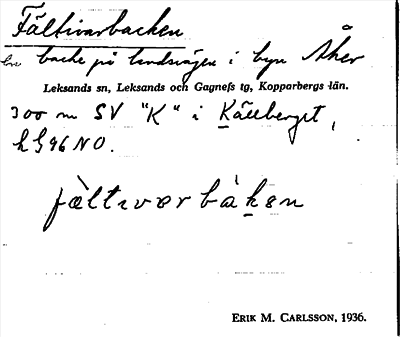 Fältivarbacken
bru backe på landsvägen i byn Åker
Leksands sn, Leksands och Gagnefs tg, Kopparbergs län.
300 m SV "K" i Källberget,
h896 NO.
fæ̀ltɩvɐrbàkɐn
ERIK M. CARLSSON, 1936.